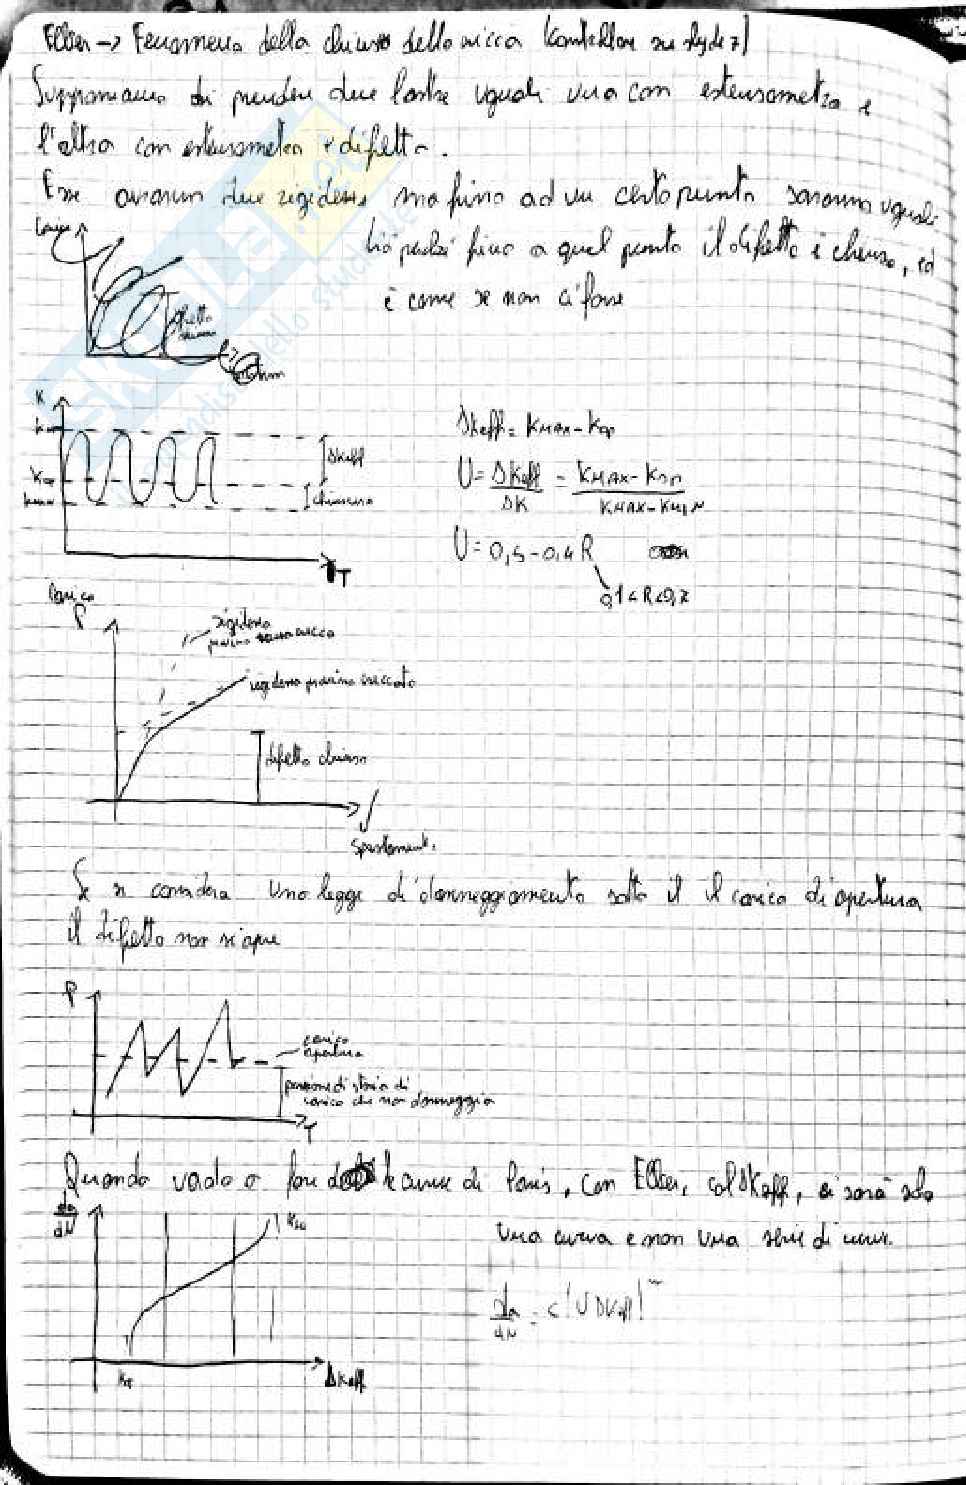 Elber -> Fenomeno della chiusura della cricca (controllare su slyde 7)
Supponiamo di prendere due lastre uguali una con estensometro e
l'altra con estensometro e difetto.
Esse avranno due rigidezze ma fino ad un certo punto saranno uguali
Carico
ciò perché fino a quel punto il difetto è chiuso, ed
è come se non ci fosse
difetto chiuso
K
Kop
Kmin
ΔKeff
chiusura
T
ΔKeff = KMAX - Kop
U = ΔKeff / ΔK = KMAX - Kop / KMAX - KMIN
U = 0,5 - 0,4 R
0,1 < R < 0,7
Carico
P
rigidezza
provino senza cricca
rigidezza provino criccato
difetto chiuso
Spostamento
Se si considera una legge di danneggiamento sotto il il carico di apertura
il difetto non si apre
P
carico
apertura
porzione di storia di
carico che non danneggia
T
Quando vado a fare le curve di Paris, con Elber, col ΔKeff, ci sarà solo
una curva e non una serie di curve.
da/dN
ΔKeff
da/dN = C (U ΔKeff)^m